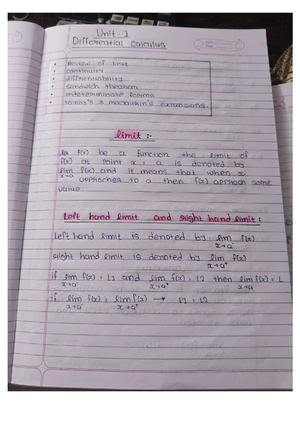 Unit - 1
Differential Calculus
• Review of limit
• continuity
• differentiability
• sandwich theorem
• indeterminate forms
• taylor's & maclaurin's expansions
limit :-
f(x) be a function the limit of
f(x) at point x = a is denoted by
lim x→a f(x) and it means that when x
approches to a then f(x) approach some
value
Left hand limit and right hand limit :
Left hand limit is denoted by lim x→a⁻ f(x)
right hand limit is denoted by lim x→a⁺ f(x)
if lim x→a⁻ f(x) = L1 and lim x→a⁺ f(x) = L2 then lim x→a f(x) = L
if lim x→a⁻ f(x) = lim x→a⁺ f(x) → L1 = L2